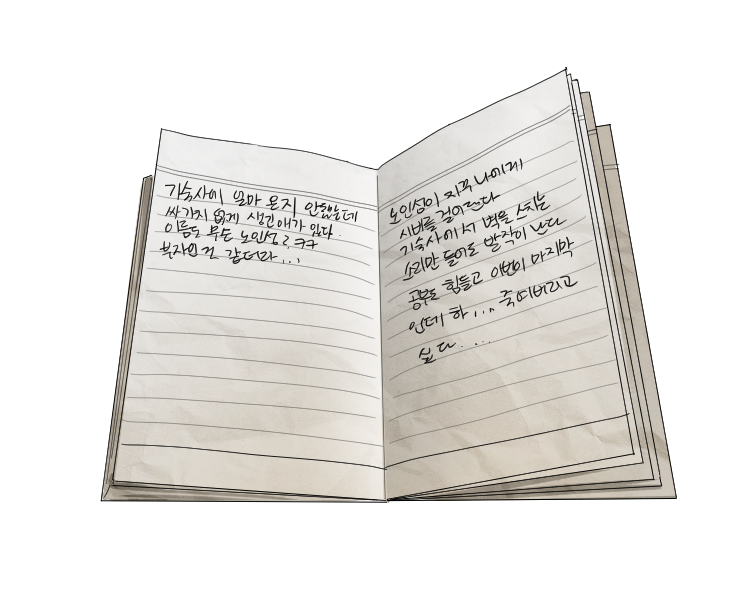 기숙사에 얼마 온지 안됐는데
싸가지 없게 생긴애가 있다.
이름도 무슨 노인성?ㅋㅋ
부자인건 같더라...
노인성이 자꾸 나에게
시비를 걸어온다
기숙사에서 벽을 스치는
소리만 들어도 발작이 난다
공부도 힘들고 이번이 마지막
인데 하... 죽여버리고
싶다.....